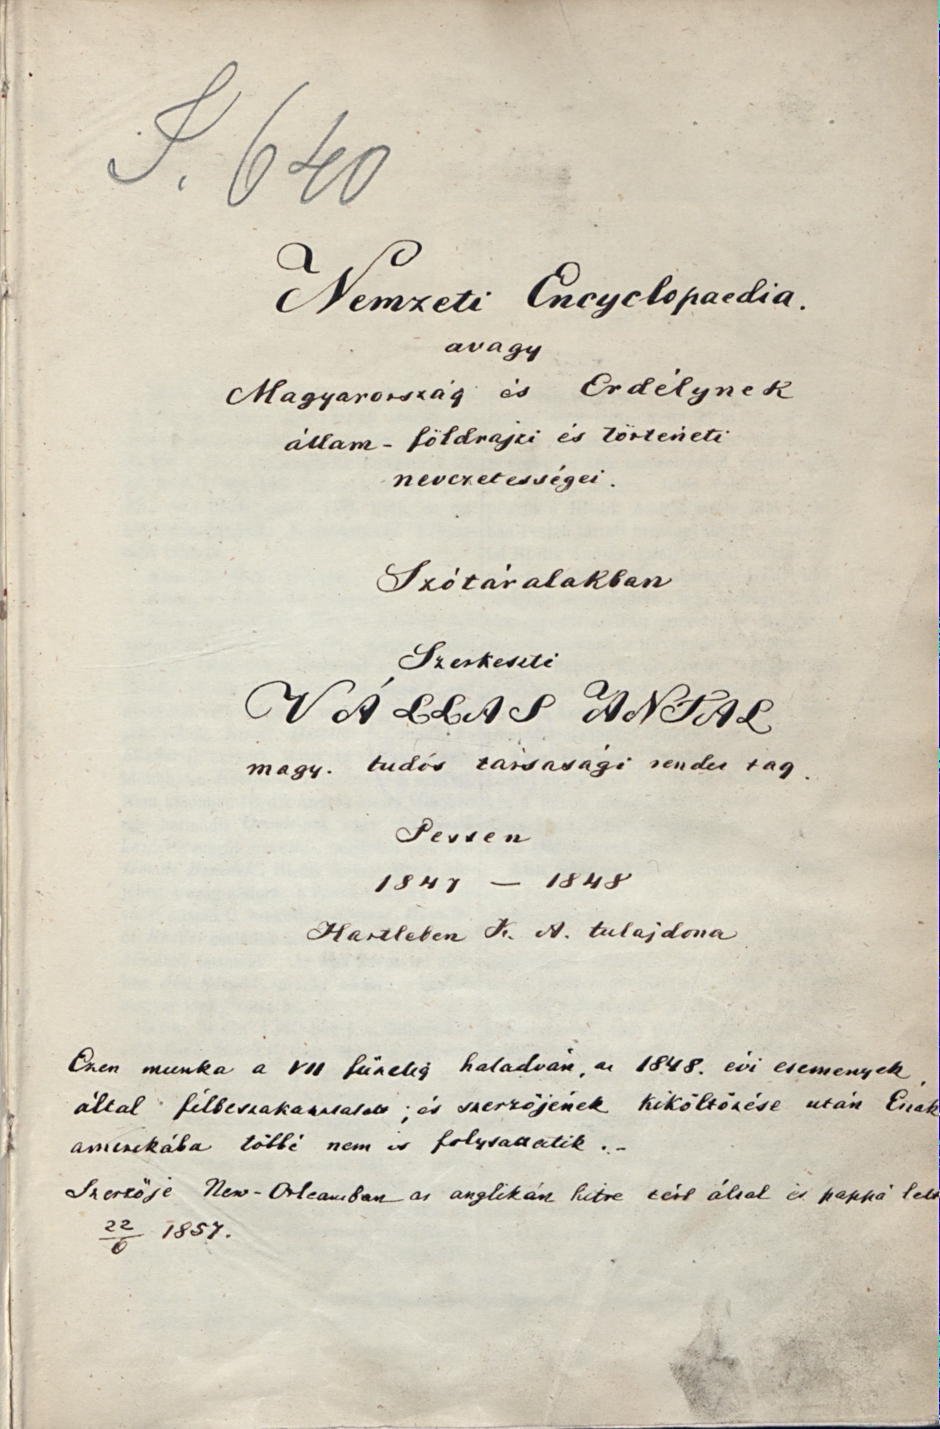 S. 640
Nemzeti Encyclopaedia.
avagy
Magyarország és Erdélynek
állam- földrajzi és történeti
nevezetességei.
Szótáralakban
Szerkeszti
VÁLLAS ANTAL
magy. tudós társasági rendes tag.
Pesten
1847 — 1848
Hartleben K. A. tulajdona
Ezen munka a VII füzetig haladván, az 1848. évi események
által félbeszakasztatott; és szerzőjének kiköltözése után Észak
amerikába többé nem is folytattatik.-
Szerzője New-Orleansban az anglikán hitre tért által és pappá lett
22/6 1857.